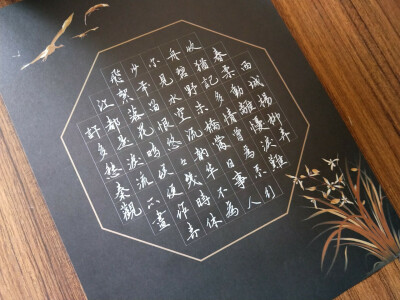 西城楊柳弄
春柔動離憂淚難
收猶記多情曾為系归
舟碧野朱橋當日事人
不見水空流韶華不為
少年留恨悠悠幾時休
飛絮落花時候便作春
江都是淚流不盡
許多愁秦觀